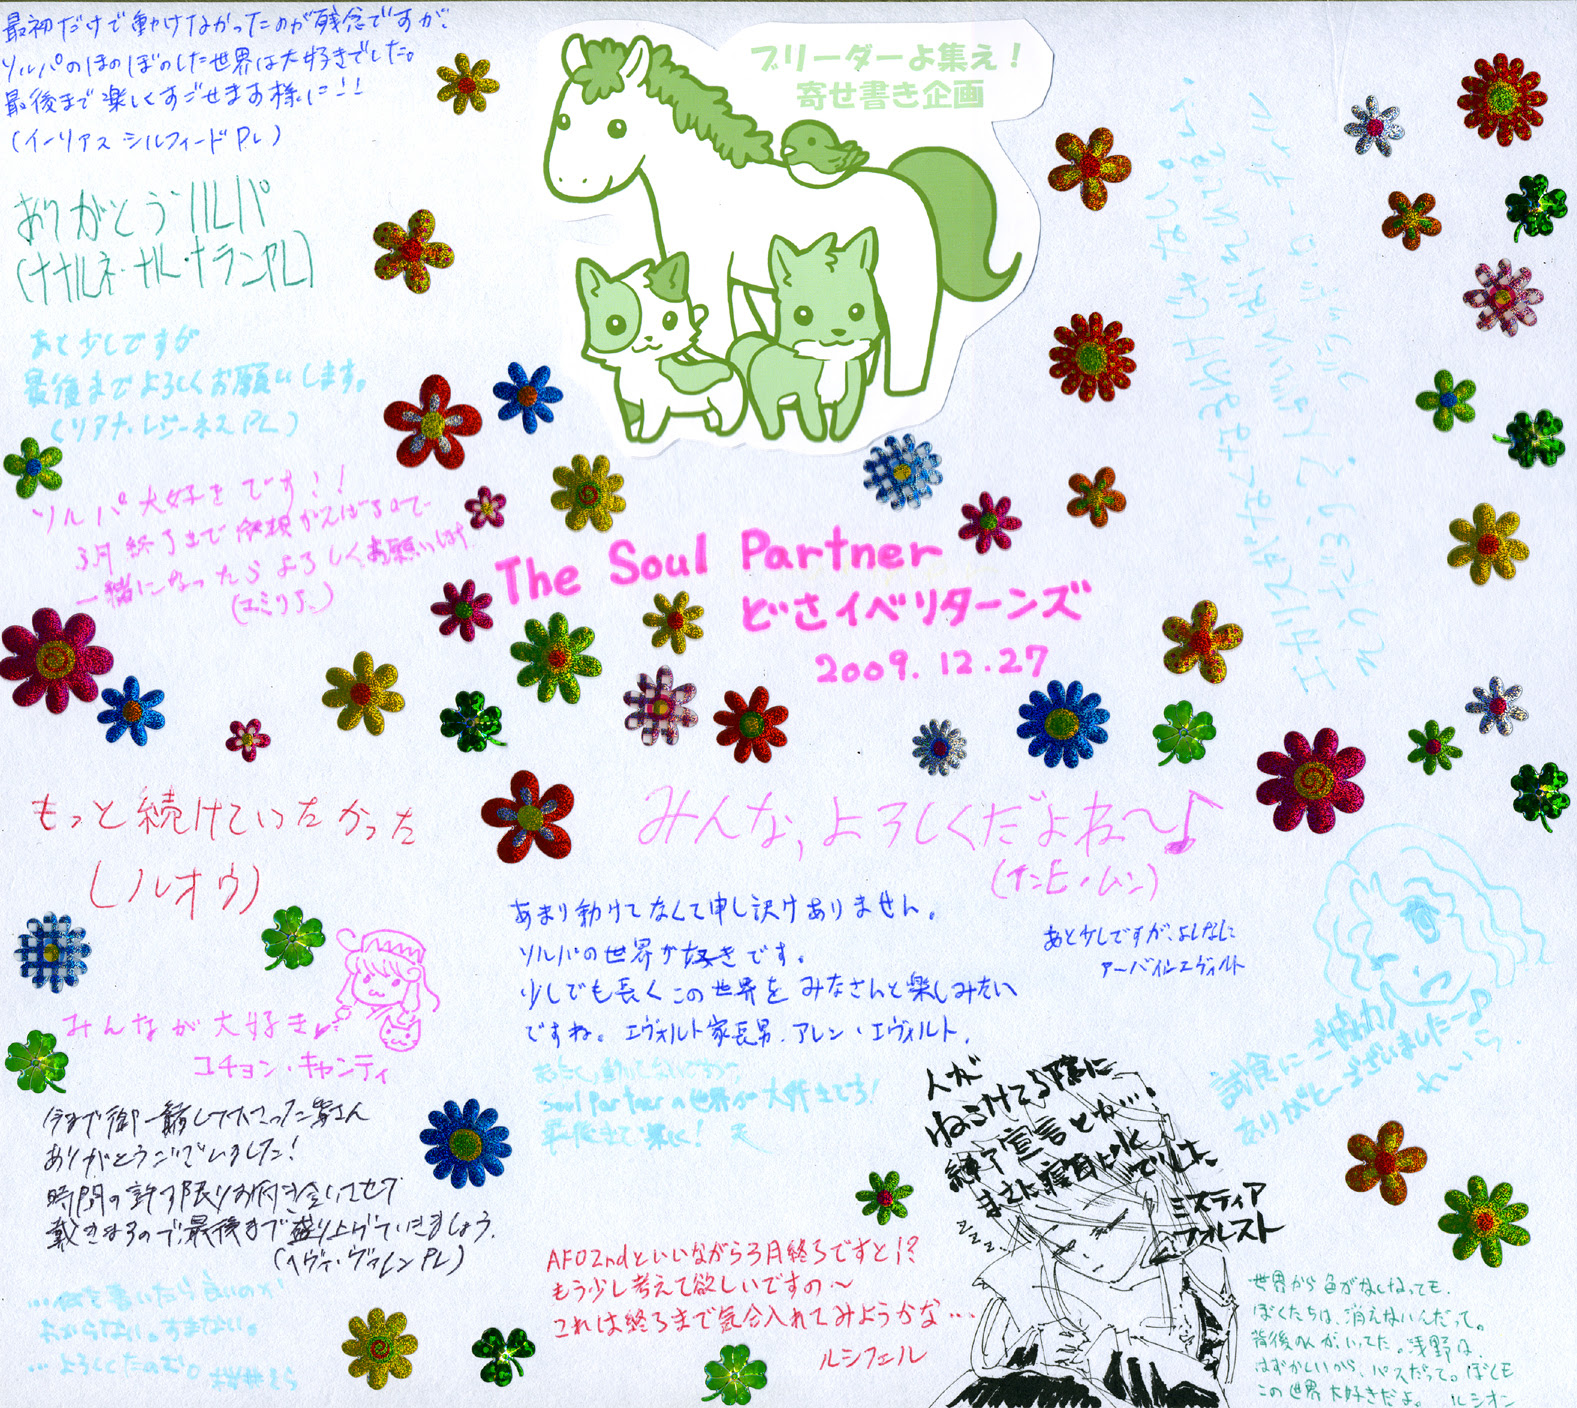 最初だけで動けなかったのが残念ですが、
ソルパのほのぼのした世界は大好きでした。
最後まで楽しくすごせます様に!!
(イーリアス シルフィードPL)
ブリーダーよ集え!
寄せ書き企画
ありがとうソルパ
(ナナルネ・ナル・ナランPL)
あと少しですが
最後までよろしくお願いします。
(リアナ・レジーネスPL)
ソルパ大好きです!!
3月終了まで
一緒になったらよろしくお願いします
(エミリア)
The Soul Partner
どさイベリターンズ
2009.12.27
もっと続けていたかった
(ノルオウ)
みんな,よろしくだよね〜♪
(インヒ・ムン)
あまり動けてなくて申し訳ありません。
ソルパの世界が好きです。
少しでも長くこの世界をみなさんと楽しみたい
ですね。エヴォルト家長男.アレン・エヴォルト.
あと少しですが、よしなに
アーバインエヴォルト
試食にご協力
ありがとーございましたー♪
れいら.
みんなが大好き♪
ユチョン・キャンティ
Soul Partnerの世界が大好きです!
最後まで楽しく!
人が
ねらけてる隙に
終了宣言とか…!
まさに寝耳に水
でした、
ミスティア
フォレスト
zzz...
今まで御一緒して下さった皆さん
ありがとうございました!
時間の許す限りお付き合いさせて
戴きますので最後まで盛り上げていきましょう.
(ヘヴィ・ヴァレンPL)
…何を書いたら良いのか
わからない。すまない。
…よろしくたのむ。桜井そら
AFO2ndといいながら3月終了ですと!?
もう少し考えて欲しいですの〜
これは終了まで気合入れてみようかな…
ルシフェル
世界から色がなくなっても、
ぼくたちは、消えないんだって。
背後の人がいってた。浅野は、
はずかしいから、パスだって。ぼくも
この世界大好きだよ。 ルシオン